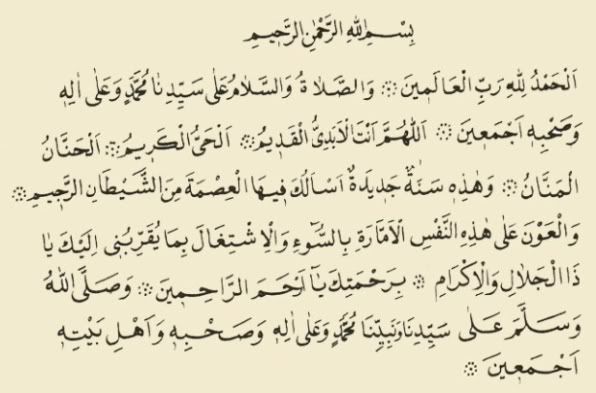 بِسْمِ اللهِ الرَّحْمٰنِ الرَّحِيمِ
اَلْحَمْدُ لِلّٰهِ رَبِّ الْعَالَمِينَ ۞ وَالصَّلَاةُ وَالسَّلَامُ عَلٰى سَيِّدِنَا مُحَمَّدٍ وَعَلٰى اٰلِهِ
وَصَحْبِهِ اَجْمَعِينَ ۞ اَللّٰهُمَّ اَنْتَ الْاَبَدِىُّ الْقَدِيمُ ۞ اَلْحَىُّ الْكَرِيمُ ۞ اَلْحَنَّانُ
الْمَنَّانُ ۞ وَهٰذِهِ سَنَةٌ جَدِيدَةٌ اَسْاَلُكَ فِيهَا الْعِصْمَةَ مِنَ الشَّيْطَانِ الرَّجِيمِ ۞
وَالْعَوْنَ عَلٰى هٰذِهِ النَّفْسِ الْاَمَّارَةِ بِالسُّوٓءِ وَالْاِشْتِغَالَ بِمَا يُقَرِّبُنِى اِلَيْكَ يَا
ذَا الْجَلَالِ وَالْاِكْرَامِ ۞ بِرَحْمَتِكَ يَآ اَرْحَمَ الرَّاحِمِينَ ۞ وَصَلَّى اللهُ
وَسَلَّمَ عَلٰى سَيِّدِنَا وَنَبِيِّنَا مُحَمَّدٍ وَعَلٰى اٰلِهِ وَصَحْبِهِ وَاَهْلِ بَيْتِهِ
اَجْمَعِينَ ۞